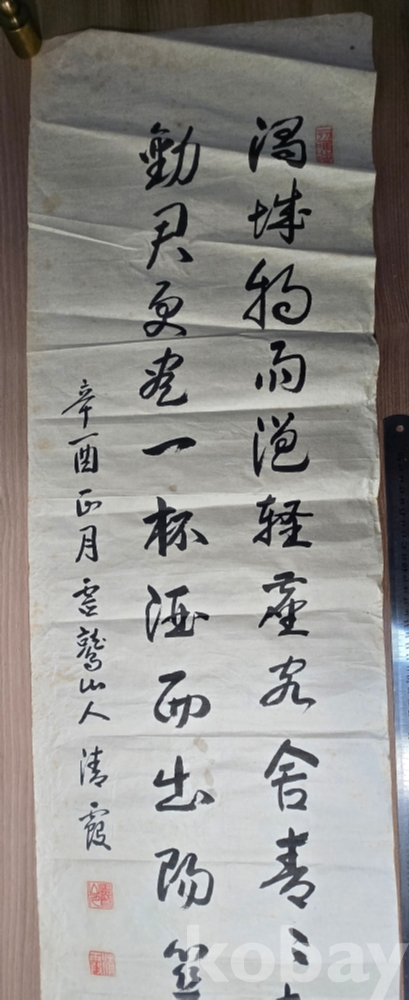 渭城朝雨浥輕塵客舍青〻
勸君更盡一杯酒西出陽
辛酉正月靈鷲山人 清霞
kobay